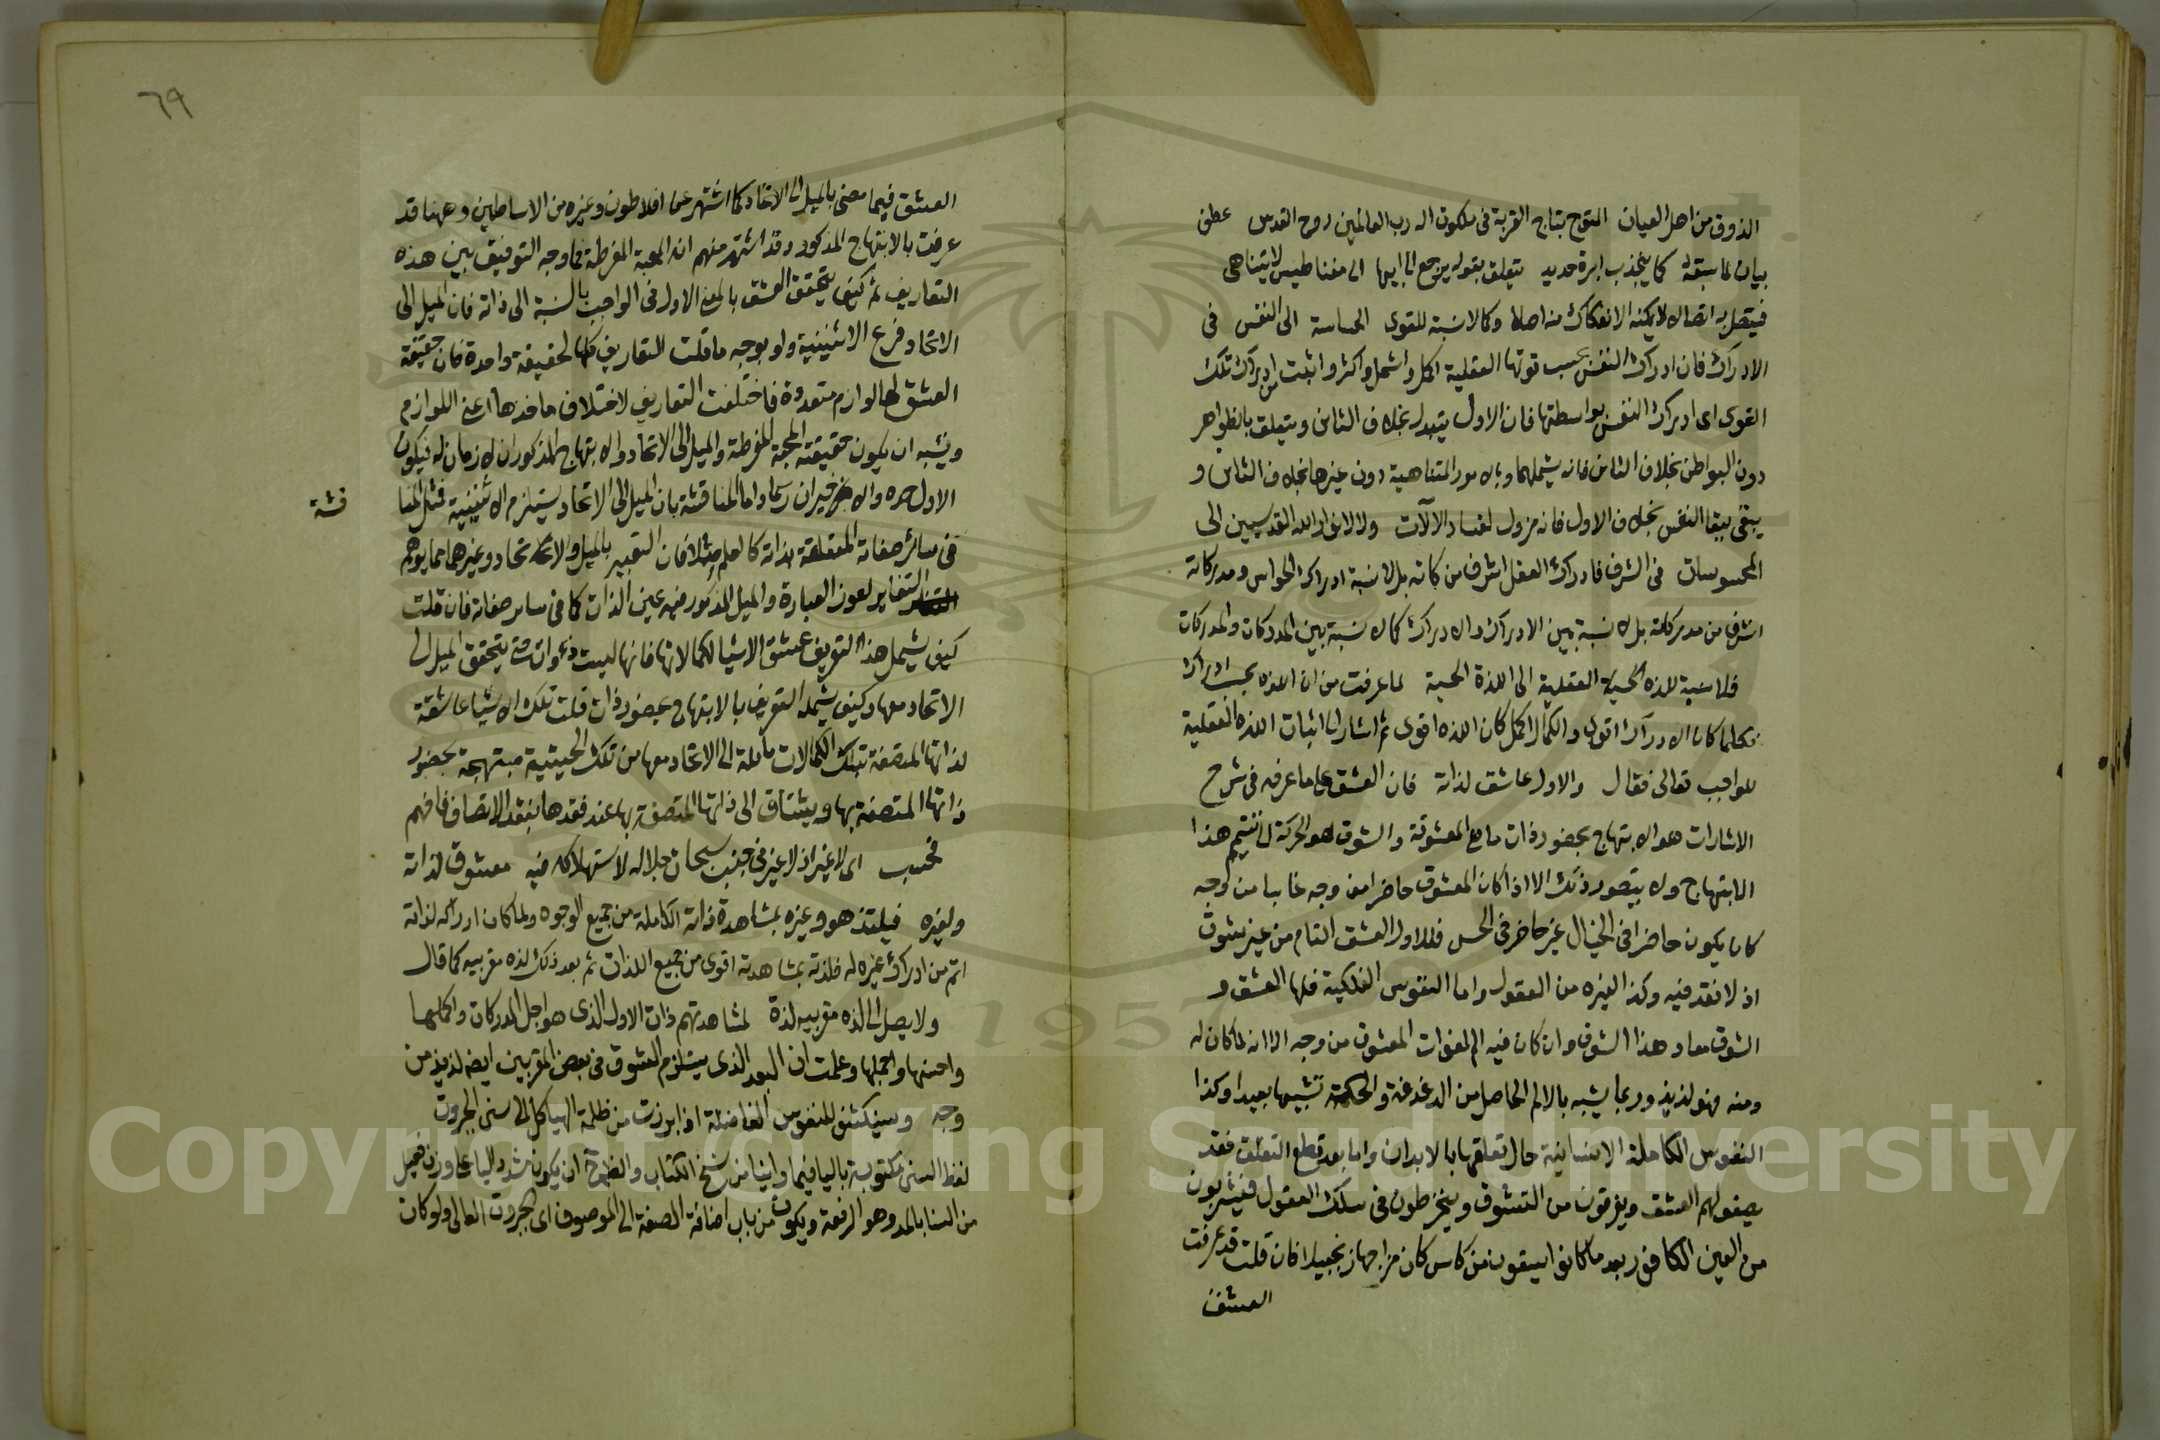 الذوق من اهل العيان المتوج بتاج القربة فى ملكوت اله رب العالمين روح القدس عطف
بيان لما سبقه كما ينجذب ابرة حديد يتعلق بقوله يرجع الى ابيها الى مغناطيس لا يتناهى
فيتصل به اتصالا لا يمكنه الانفكاك منه اصلا وكما لا نسبة للقوى الحساسة الى النفس فى
الادراك فان ادراك النفس بحسب قوتها العقلية اكمل واشمل واكثر واثبت من ادراك تلك
القوى اى ادراك النفس بواسطتها فان الاول يتبدل بخلاف الثانى ويتعلق بالظواهر
دون البواطن بخلاف الثانى فانه يشملهما وبالامور المتناهية دون غيرها بخلاف الثانى و
يبقى ببقا النفس بخلاف الاول فانه يزول لفساد الآلات ولا لانوار الله القدسيين الى
المحسوسات فى الشرف فادراك العقل اشرف من كاته بل لا نسبة ادراك الحواس ومدركاته
اشرف من مدركاته بل لا نسبة بين الادراك والادراك كما لا نسبة بين المدركات والمدركات
فلا نسبة للذه العقلية الى اللذة الحسية لما عرفت من ان اللذه بحسب ادراك
فكلما كان الادراك اقوى والكمال اكمل كان اللذه اقوى ثم اشار الى اثبات اللذه العقلية
للواجب تعالى فقال والاول عاشق لذاته فان العشق على ما عرفه فى شرح
الاشارات هو الابتهاج بحضور ذات ما هى المعشوقة والشوق هو الحركة الى تتميم هذا
الابتهاج ولا يتصور ذلك الا اذا كان المعشوق حاضرا من وجه غايبا من وجه
كان يكون حاضرا فى الخيال غير حاضر فى الحس فللاول العشق التام من غير شوق
اذ لا فقد فيه وكذا لغيره من العقول واما النفوس الفلكية فلها العشق و
الشوق معا وهذا الشوق وان كان فيه الم لفوات المعشوق من وجه الا انه لما كان له
ومنه فهو لذيذ وربما يشبه بالالم الحاصل من الدغدغة والحكة تشبيها بعيدا وكذا
النفوس الكاملة الانسانية حال تعلقها بالابدان واما بعد قطع التعلق فقد
يصفو لهم العشق ويفرقون من التشوق وينخرطون فى سلك العقول فيشربون
من العين الكافور بعد ما كانوا يسقون من كاس كان مزاجها زنجبيلا فان قلت قد عرفت
العشق
٦٩
العشق فيما مضى بالميل الى الاتحاد كما اشتهر عن افلاطون وغيره من الاساطين وههنا قد
عرفت بالابتهاج المذكور وقد اشتهر منهم انه المحبة المفرطة فما وجه التوفيق بين هذه
التعاريف ثم كيف يتحقق العشق بالمعنى الاول فى الواجب بالنسبة الى ذاته فان الميل الى
الاتحاد فرع الاثنينية ولو بوجه ما قلت التعاريف كلها لحقيقة واحدة فان حقيقة
العشق لها لوازم متعددة فاختلفت التعاريف لاختلاف ماخذها اعنى اللوازم
ويشبه ان يكون حقيقته المحبة المفرطة والميل الى الاتحاد والابتهاج المذكوران لازمان له فيكون
الاول حده والاخيران رسما واما المناقشة بان الميل الى الاتحاد يستلزم الاثنينية فمثل المنا
قشة
فى سائر صفاته المتعلقة بذاته كالعلم مثلا فان التعبير بالميل والاتحاد وغيرهما مما يوهم
التغاير لعوز العبارة والميل المذكور فيه عين الذات كما فى ساير صفاته فان قلت
كيف يشمل هذا التعريف عشق الاشيا لكمالاتها فانها ليست ذوات حتى يتحقق الميل الى
الاتحاد معها وكيف يشمله التعريف بالابتهاج بحضور ذات قلت تلك الاشيا عاشقة
لذاتها المتصفة بتلك الكمالات مائلة الى الاتحاد معها من تلك الحيثية مبتهجة بحضور
ذاتها المتصفة بها ويشتاق الى ذاتها المتصفة بها عند فقدها بفقد الاتصاف فافهم
فحسب اى لا غير اذ لا غير فى جنب سبحات جلاله لاستهلاكه فيه معشوق لذاته
ولغيره فيلتذ هو وغيره بمشاهدة ذاته الكاملة من جميع الوجوه ولما كان ادراكه لذاته
اتم من ادراك غيره له فلذته بمشاهدته اقوى من جميع اللذات ثم بعد ذلك لذه مقربيه كما قال
ولا يصل الى لذه مقربيه لذة لمشاهدتهم ذات الاول الذى هو اجل المدركات واكملها
واحسنها واجملها وعلمت ان البعد الذى يستلزم العشوق فى بعض المقربين ايضا لذيذ من
وجه وسينكشف للنفوس الفاضلة اذا برزت من ظلمة الهياكل الى سنى الجبروت
لفظ السنى مكتوبة باليا فيما راينا من نسخ الكتاب والظاهر ان يكون بتشديد اليا على وزن فعيل
من السنا بالمد وهو الرفعة ويكون من باب اضافة الصفة الى الموصوف اى الجبروت العالى ولو كان
Copyright © King Saud University
1957